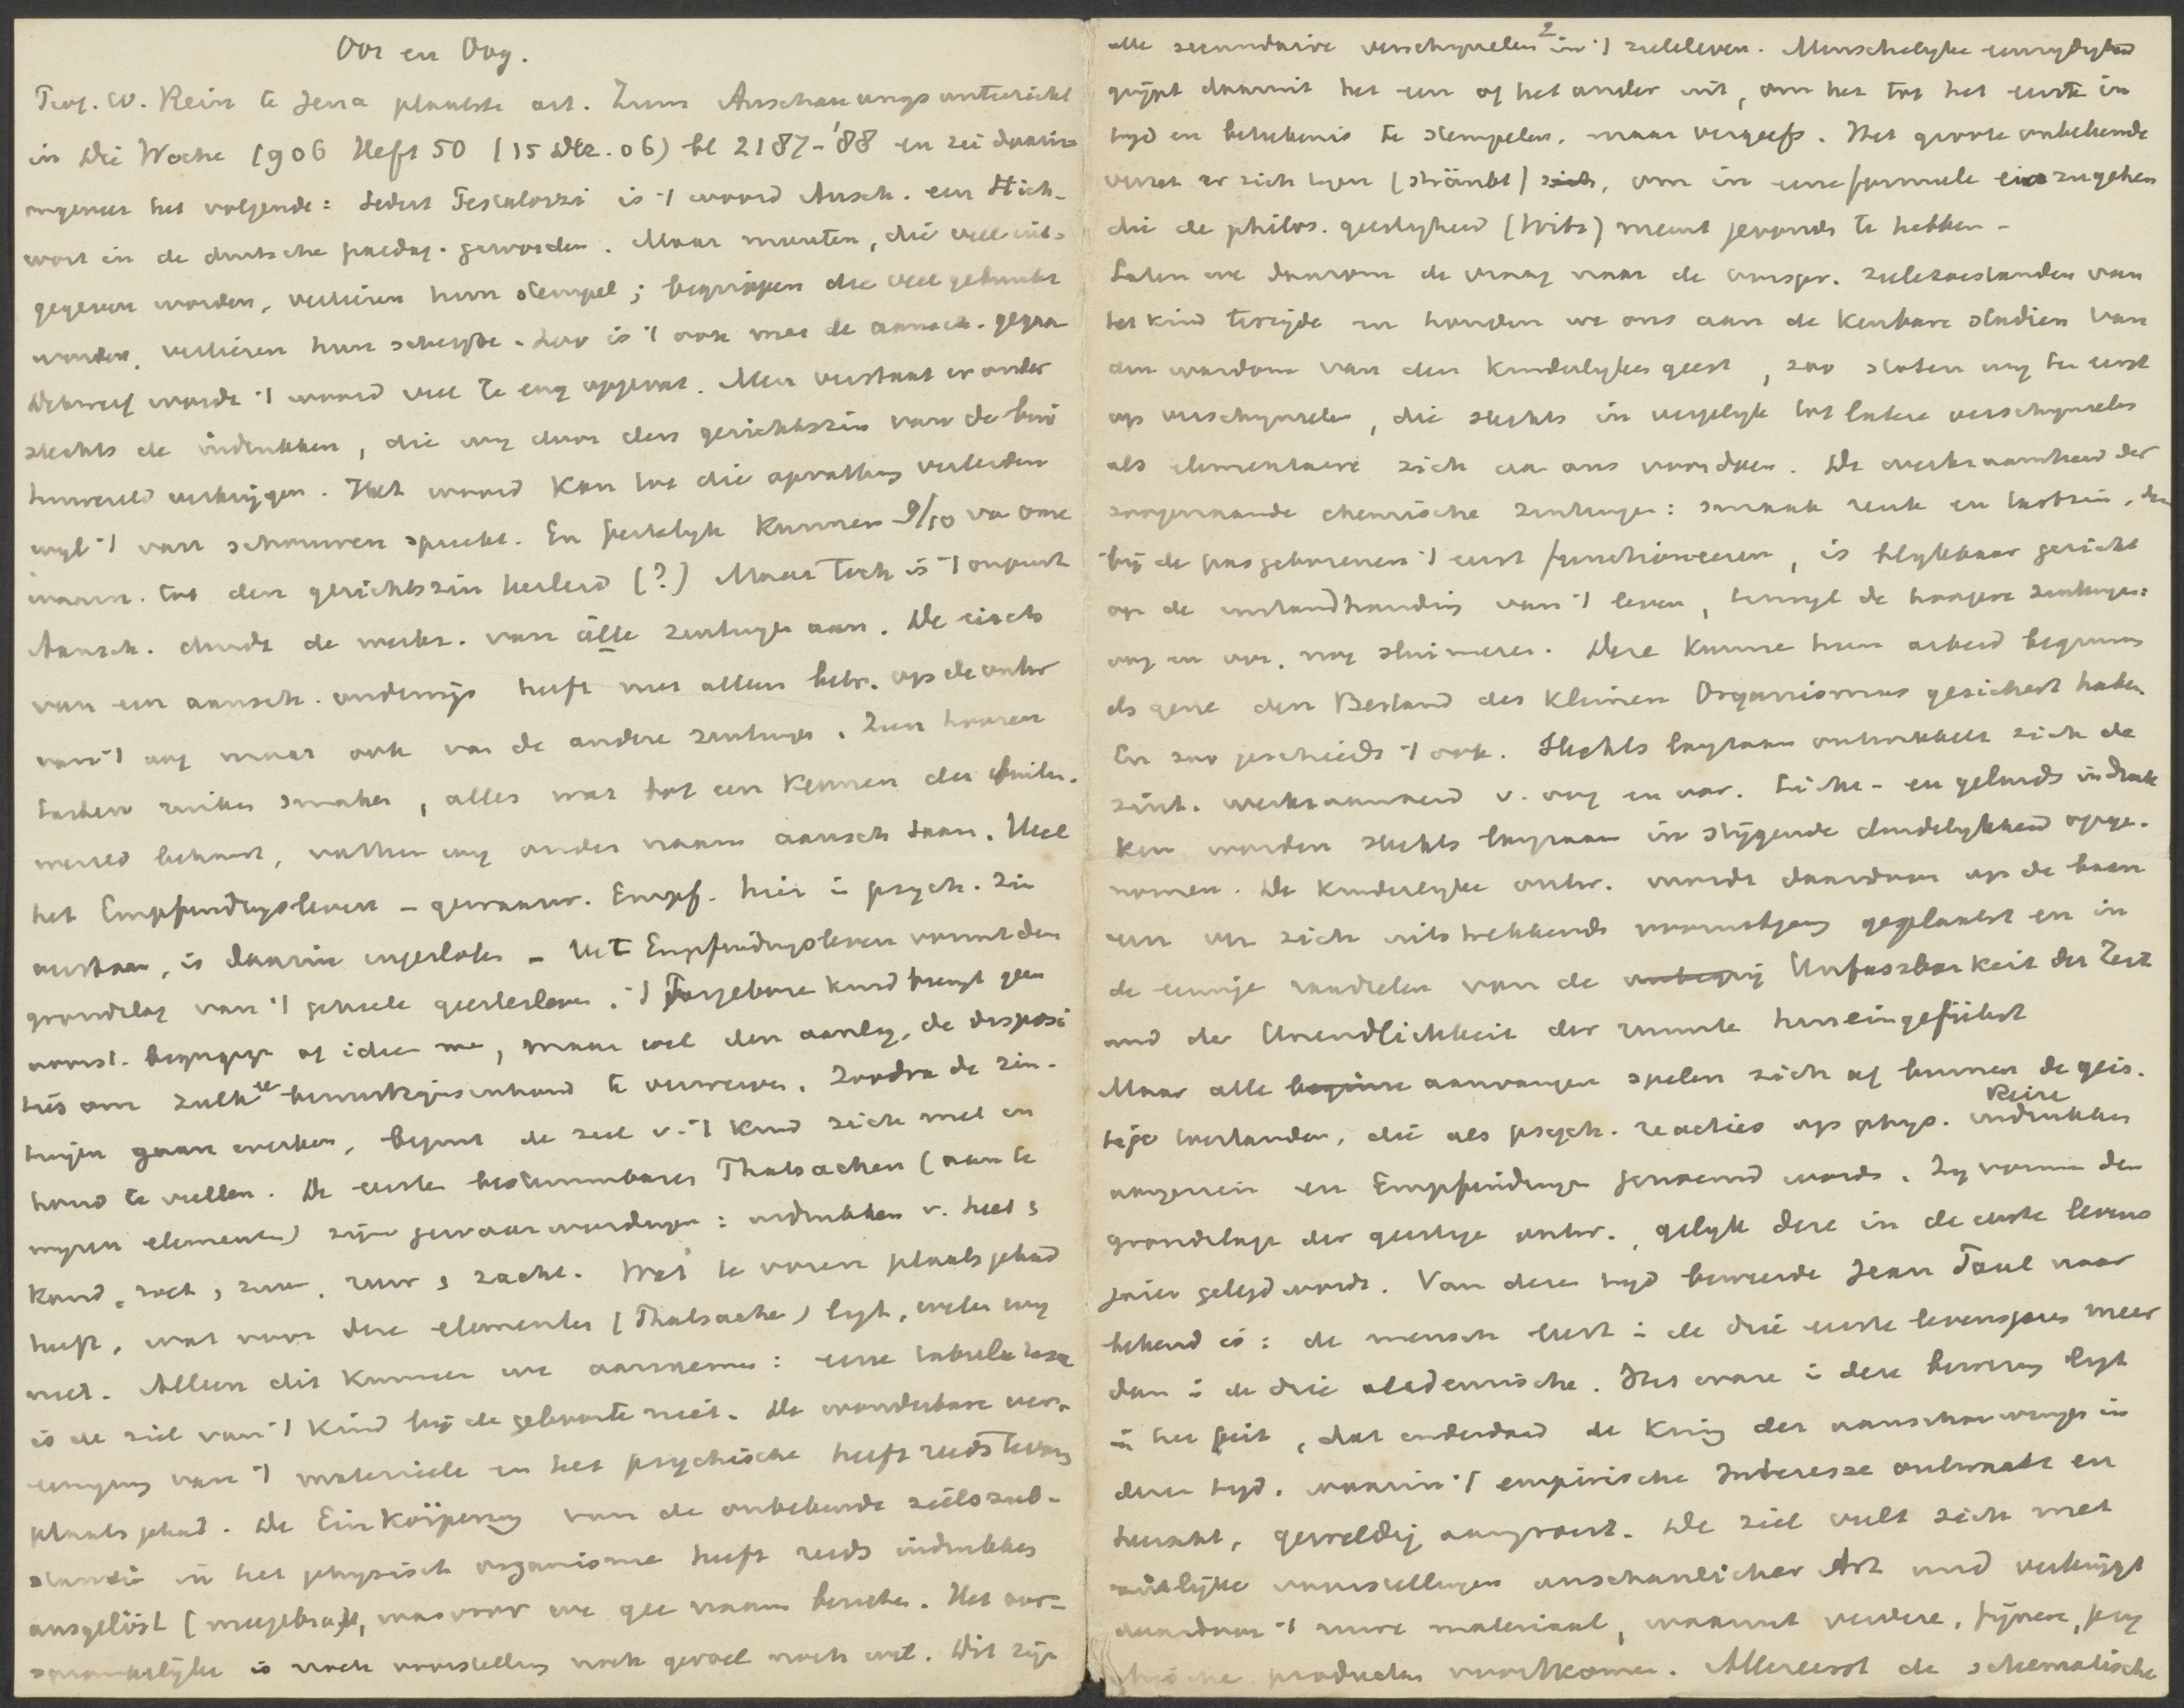 Oor en Oog.
Prof. W. Rein te Jena plaatste art. Zum Anschauungsunterricht
in Die Woche 1906 Heft 50 (15 Dez. 06) bl 2187-'88 en zei daarin
ongeveer het volgende: Sedert Pestalozzi is 't woord Ansch. een Stich-
wort in de duitsche paedag. geworden. Maar munten, die veel uit-
gegeven worden, verliezen hun stempel; begrippen die veel gebruikt
worden, verliezen hun scherpte. Zoo is 't ook met de aansch. gegaan
Dikwerf wordt 't woord veel te eng opgevat. Men verstaat er onder
slechts de indrukken, die wij door den gezichtszin van de bui
tenwereld verkrijgen. Het woord kan tot die opvatting verleiden
wijl 't van schouwen spreekt. En feitelijk kunnen 9/10 van onze
waarn. tot den gezichtszin herleid (?) Maar toch is 't onjuist
Aansch. duidt de werkz. van alle zintuigen aan. De eisch
van een aansch. onderwijs heeft niet alleen betr. op de ontw
van 't oog maar ook van de andere zintuigen. Zien hooren
tasten ruiken smaken, alles wat tot een kennen der buiten.
wereld behoort, vatten wij onder naam aansch saam. Heel
het Empfindungsleven – gewaarw. Empf. hier in psych. zin
verstaan, is daarin ingesloten – Het Empfindungsleven vormt den
grondslag van 't geheele geestesleven. 't Pasgeboren kind brengt geen
voorst. begrippen of ideen mee, maar wel den aanleg, de disposi
ties om zulke bewustzijnsinhoud te verwerven. Zoodra de zin-
tuigen gaan werken, begint de ziel v. 't kind zich met in
houd te vullen. De eerste bestimmbaren Thatsachen (aan te
wijzen elementen) zijn gewaarwordingen: indrukken v. heet &
koud, zoet, zuur, ruw & zacht. Wat te voren plaats gehad
heeft, wat voor deze elementen (Thatsache) ligt, weten wij
niet. Alleen dit kunnen we aannemen: eene tabula rasa
is de ziel van 't kind bij de geboorte niet. De wonderbare ver-
eeniging van 't materieele en het psychische heeft reeds tevoren
plaats gehad. De Einkörperung van de onbekende zielssub-
stantie in het physisch organisme heeft reeds indrukken
ausgelöst (meegebracht), waarvoor we geen naam bezitten. Het oor-
spronkelijke is noch voorstelling noch gevoel noch wil. Dit zijn
2
alle secundaire verschijnselen in 't zieleleven. Menschelijke eenzijdigheid
grijpt daaruit het een of het ander uit, om het tot het eerste in
tijd en beteekenis te stempelen, maar vergeefs. Het groote onbekende
verzet er zich tegen (sträubt) sich, om in eene formule einzugehen
die de philos. geestigheid (Witz) meent gevonden te hebben –
Laten we daarom de vraag naar de oorspr. zielstoestanden van
het kind terzijde en houden we ons aan de kenbare stadien van
den wasdom van den kinderlijken geest, zoo stoten wij ten eerst
op verschijnselen, die slechts in vergelijk tot latere verschijnselen
als elementaire zich aan ons voordoen. De werkzaamheid der
zoogenaamde chemische zintuigen: smaak reuk en tastzin, die
bij de pasgeborenen 't eerst functioneeren, is blijkbaar gericht
op de instandhouding van 't leven, terwijl de hoogere zintuigen:
oog en oor, nog sluimeren. Deze kunnen hun arbeid beginnen
als gene den Bestand des kleinen Organismus gesichert haben.
En zoo geschiedt 't ook. Slechts langzaam ontwikkelt zich de
zint. werkzaamheid v. oog en oor. Licht- en geluids indruk
ken worden slechts langzaam in stijgende duidelijkheid opge-
nomen. De kinderlijke ontw. wordt daardoor op de baan
een ver zich uitstrekkends vooruitgang geplaatst en in
de eeuwige raadselen van de onbegrij Unfaszbarkeit der Zeit
und der Unendlichkeit der ruimte hineingeführt
Maar alle begin aanvangen spelen zich af binnen de gees.
tige toestanden, die als psych. reacties op phys. Reize indrukken
aangezien en Empfindungen genoemd worden. Zij vormen den
grondslag der geestige ontw., gelijk deze in de eerste levens
jaren gelegd wordt. Van dezen tijd beweerde Jean Paul naar
bekend is: de mensch leert in de drie eerste levensjaren meer
dan in de drie akademische. Het ware in deze bewering ligt
in het feit, dat inderdaad de Kring der aanschouwingen in
dezen tijd, waarin 't empirische Interesse ontwaakt en
, geweldig aangroeit. De ziel vult zich met
zinlijke voorstellingen anschaulicher Art und verkrijgt
daardoor 't ruwe materiaal, waaruit verdere, fijnere, psy
chische producten voortkomen. Allereerst de schematische